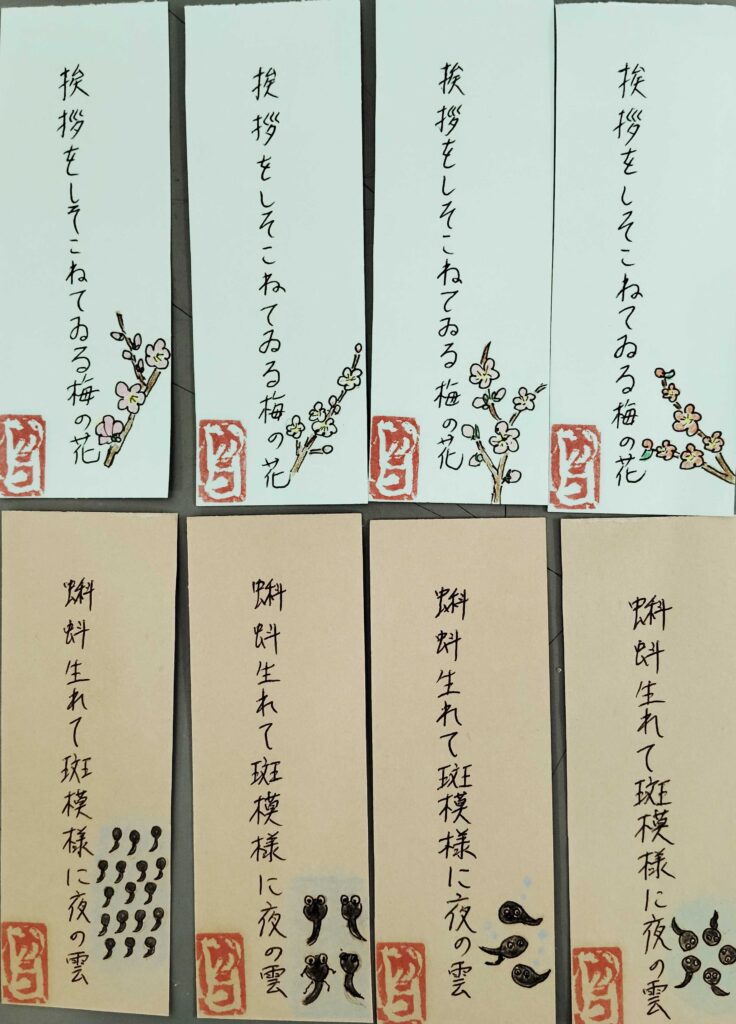 挨拶をしそこねてゐる梅の花
挨拶をしそこねてゐる梅の花
挨拶をしそこねてゐる梅の花
挨拶をしそこねてゐる梅の花
蝌蚪生れて斑模様に夜の雲
蝌蚪生れて斑模様に夜の雲
蝌蚪生れて斑模様に夜の雲
蝌蚪生れて斑模様に夜の雲